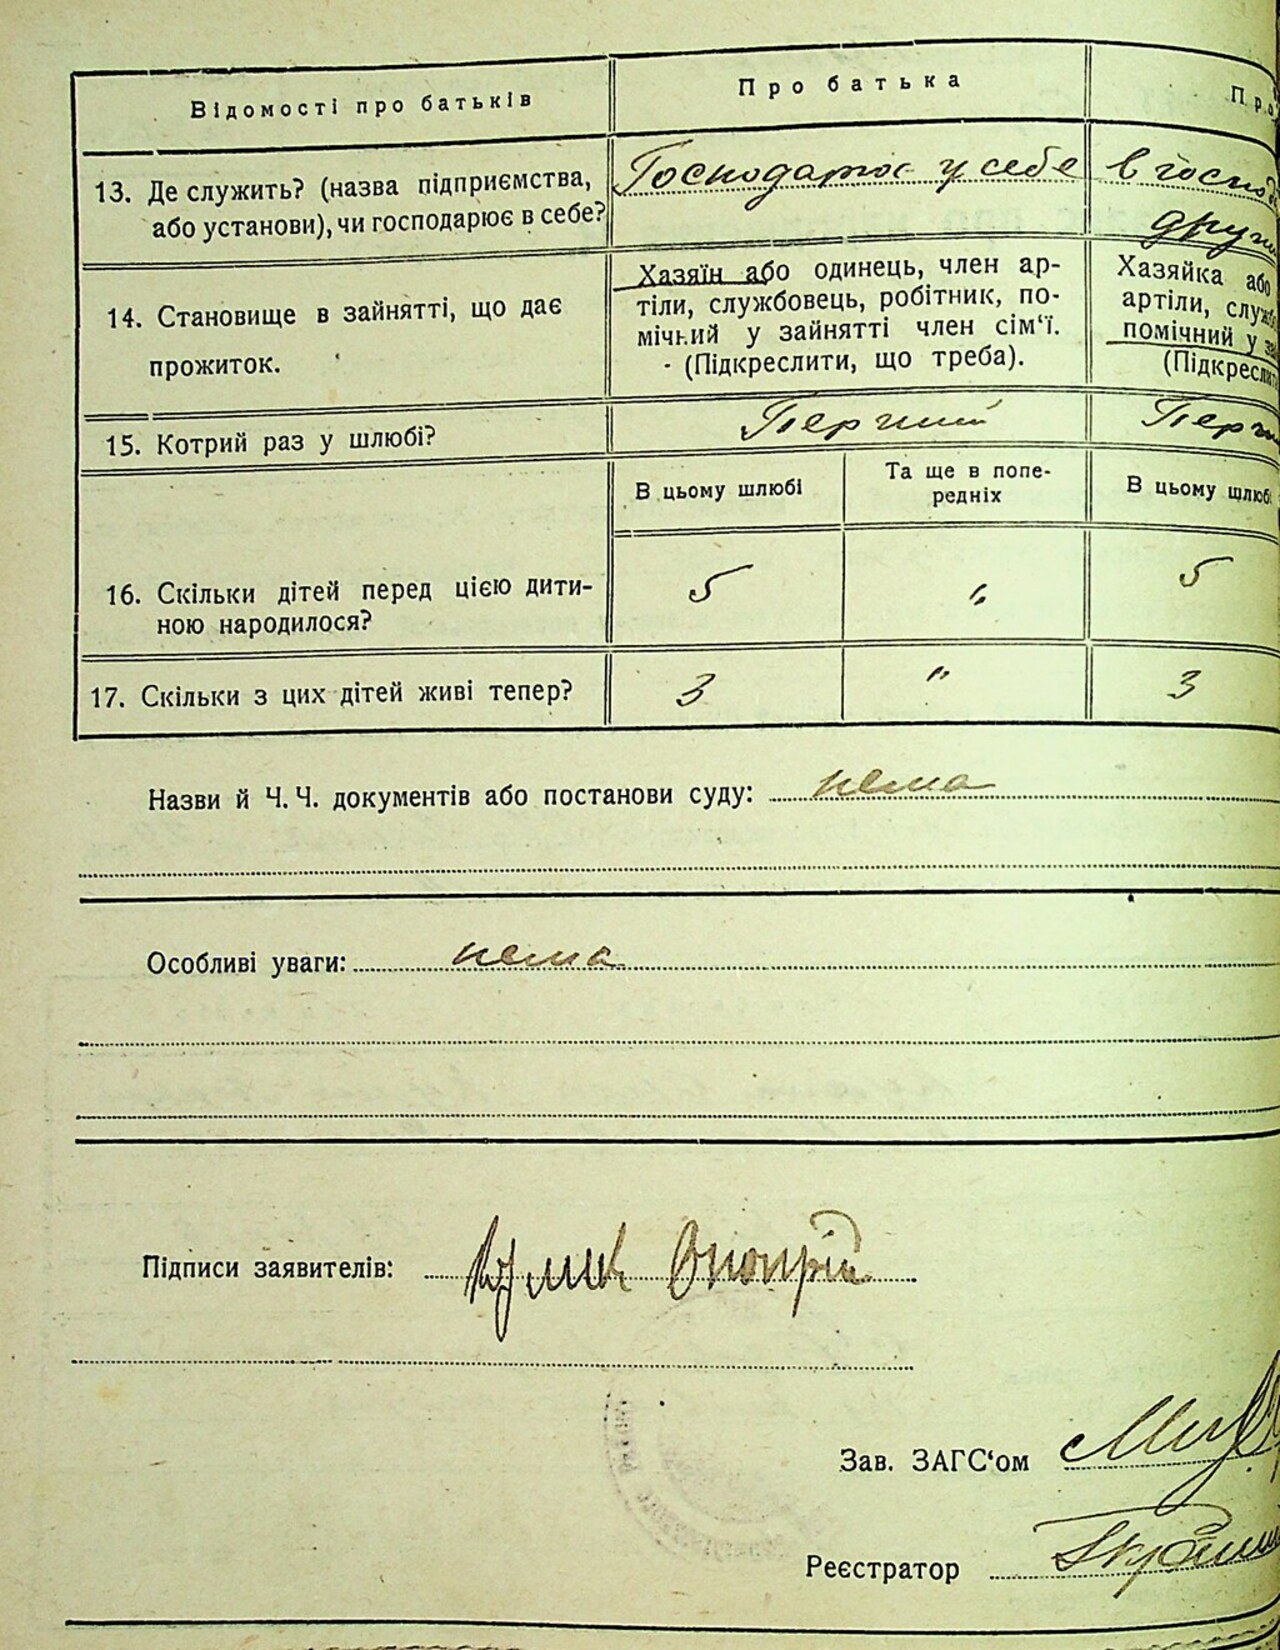 Відомості про батьків
Про батька
13. Де служить? (назва підприємства,
або установи), чи господарює в себе?
Господарює у себе
в господ
друж
14. Становище в зайнятті, що дає
прожиток.
Хазяїн або одинець, член ар-
тіли, службовець, робітник, по-
мічний у зайнятті член сім'ї.
(Підкреслити, що треба).
Хазяйка або
артіли, служб
помічний у за
(Підкресли
15. Котрий раз у шлюбі?
Перший
Перш
В цьому шлюбі
Та ще в попе-
редніх
В цьому шлюбі
16. Скільки дітей перед цією дити-
ною народилося?
5
"
5
17. Скільки з цих дітей живі тепер?
3
"
3
Назви й Ч. Ч. документів або постанови суду: нема
Особливі уваги: нема
Підписи заявителів: Кулик
Зав. ЗАГС'ом
Реєстратор